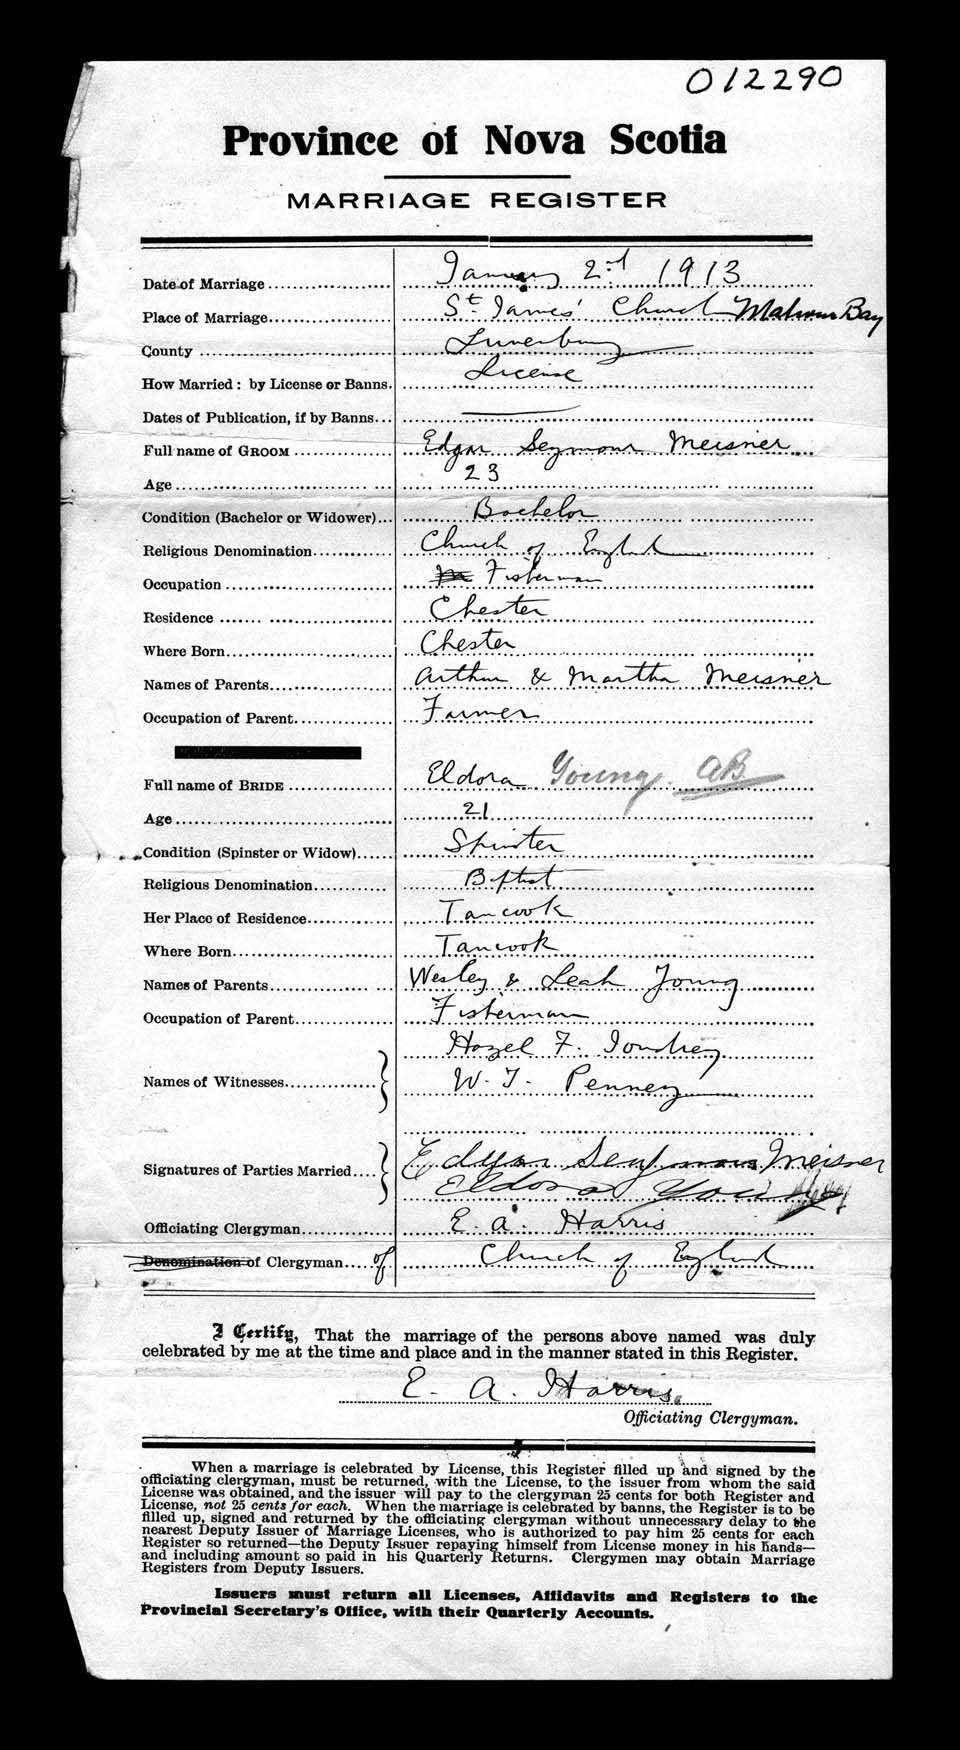 012290
Province of Nova Scotia
MARRIAGE REGISTER
Date of Marriage January 2nd 1913
Place of Marriage St. James' Church Mahone Bay
County Lunenburg
How Married: by License or Banns. License
Dates of Publication, if by Banns
Full name of GROOM Edgar Seymour Meisner
Age 23
Condition (Bachelor or Widower) Bachelor
Religious Denomination Church of England
Occupation Fisherman
Residence Chester
Where Born Chester
Names of Parents Arthur & Martha Meisner
Occupation of Parent Farmer
Full name of BRIDE Eldora Young. AB.
Age 21
Condition (Spinster or Widow) Spinster
Religious Denomination Baptist
Her Place of Residence Tancook
Where Born Tancook
Names of Parents Wesley & Leah Young
Occupation of Parent Fisherman
Hazel F.
Names of Witnesses
W. T. Penney
Edgar Seymour Meisner
Signatures of Parties Married
Eldora Young
Officiating Clergyman E. A. Harris
Denomination of Clergyman of Church of England
I Certify, That the marriage of the persons above named was duly
celebrated by me at the time and place and in the manner stated in this Register.
E. A. Harris.
Officiating Clergyman.
When a marriage is celebrated by License, this Register filled up and signed by the
officiating clergyman, must be returned, with the License, to the issuer from whom the said
License was obtained, and the issuer will pay to the clergyman 25 cents for both Register and
License, not 25 cents for each. When the marriage is celebrated by banns, the Register is to be
filled up, signed and returned by the officiating clergyman without unnecessary delay to the
nearest Deputy Issuer of Marriage Licenses, who is authorized to pay him 25 cents for each
Register so returned—the Deputy Issuer repaying himself from License money in his hands—
and including amount so paid in his Quarterly Returns. Clergymen may obtain Marriage
Registers from Deputy Issuers.
Issuers must return all Licenses, Affidavits and Registers to the
Provincial Secretary's Office, with their Quarterly Accounts.